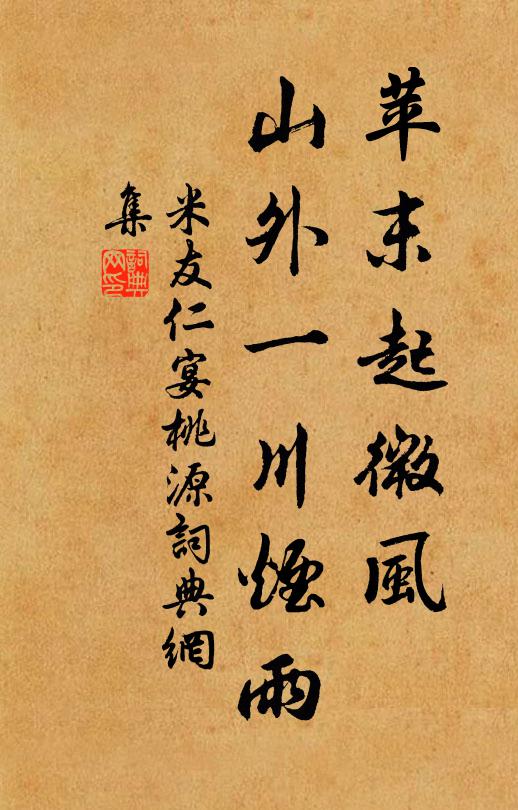 苹末起微風
山外一川煙雨
米友仁宴桃源詞典網
集
詞典網印